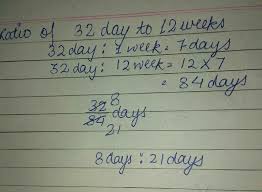 Ratio of 32 day to 12 weeks
32 day : 1 week = 7 days
32 day : 12 week = 12 × 7
= 84 days
32 8
84 days
21
8 days : 21 days